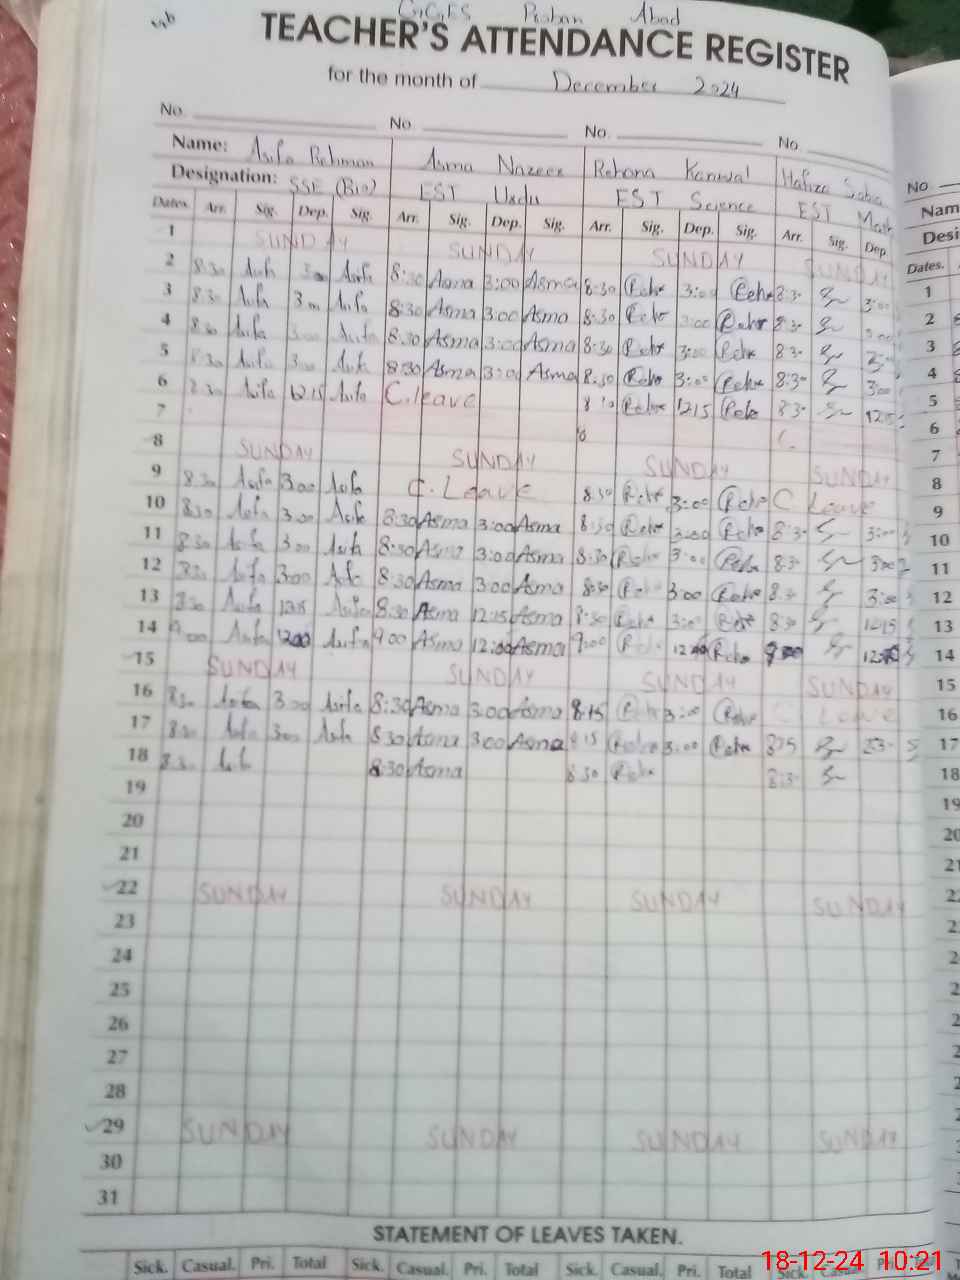 Pisban Abad
TEACHER'S ATTENDANCE REGISTER
for the month of December 2024
No. No. No. No. No
Name: Asifa Rehman Asma Nazeer Rehana Kanwal Hafiza Sabia Nam
Designation: SSE (Bio) EST Urdu EST Science EST Math Desi
Dates Arr. Sig. Dep. Sig. Arr. Sig. Dep. Sig. Arr. Sig. Dep. Sig. Arr. Sig. Dep Dates.
1 SUNDAY SUNDAY SUNDAY SUNDAY 1
2 8:30 Asifa 3:00 Asifa 8:30 Asma 3:00 Asma 8:30 Reha 3:00 Reha 8:30 3:00 2
3 8:30 Asifa 3:00 Asifa 8:30 Asma 3:00 Asma 8:30 Reha 3:00 Reha 8:30 3:00 3
4 8:30 Asifa 3:00 Asifa 8:30 Asma 3:00 Asma 8:30 Reha 3:00 Reha 8:30 3:00 4
5 8:30 Asifa 3:00 Asifa 8:30 Asma 3:00 Asma 8:30 Reha 3:00 Reha 8:30 3:00 5
6 8:30 Asifa 12:15 Asifa C.leave Reha 12:15 Reha 8:30 12:15 6
7
8 SUNDAY SUNDAY SUNDAY SUNDAY 7
9 8:30 Asifa 3:00 Asifa C.Leave 8:30 Reha 3:00 Reha C Leave 8
10 8:30 Asifa 3:00 Asifa 8:30 Asma 3:00 Asma 8:30 Reha 3:00 Reha 8:30 3:00 9
11 8:30 Asifa 3:00 Asifa 8:30 Asma 3:00 Asma 8:30 Reha 3:00 Reha 8:30 3:00 10
12 8:30 Asifa 3:00 Asifa 8:30 Asma 3:00 Asma 8:30 Reha 3:00 Reha 8:30 3:00 11
13 8:30 Asifa Asifa 8:30 Asma 12:15 Asma 8:30 Reha 3:00 Reha 8:30 12:15 12
14 9:00 Asifa 12:00 Asifa 9:00 Asma 12:00 Asma 9:00 Reha 12:00 Reha 9:00 12:00 13
15 SUNDAY SUNDAY SUNDAY SUNDAY 14
16 8:30 Asifa 3:00 Asifa 8:30 Asma 3:00 Asma 8:15 Reha 3:00 Reha C Leave 15
17 8:30 Asifa 3:00 Asifa 8:30 Asma 3:00 Asma 8:15 Reha 3:00 Reha 16
18 8:30 Asifa 8:30 Asma 8:30 Reha 8:30 17
19 18
20 19
21 20
22 SUNDAY SUNDAY SUNDAY SUNDAY
23
24
25
26
27
28
29 SUNDAY SUNDAY SUNDAY SUNDAY
30
31
STATEMENT OF LEAVES TAKEN.
Sick. Casual. Pri. Total Sick. Casual. Pri. Total Sick. Casual. Pri. Total Sick.
18-12-24 10:21